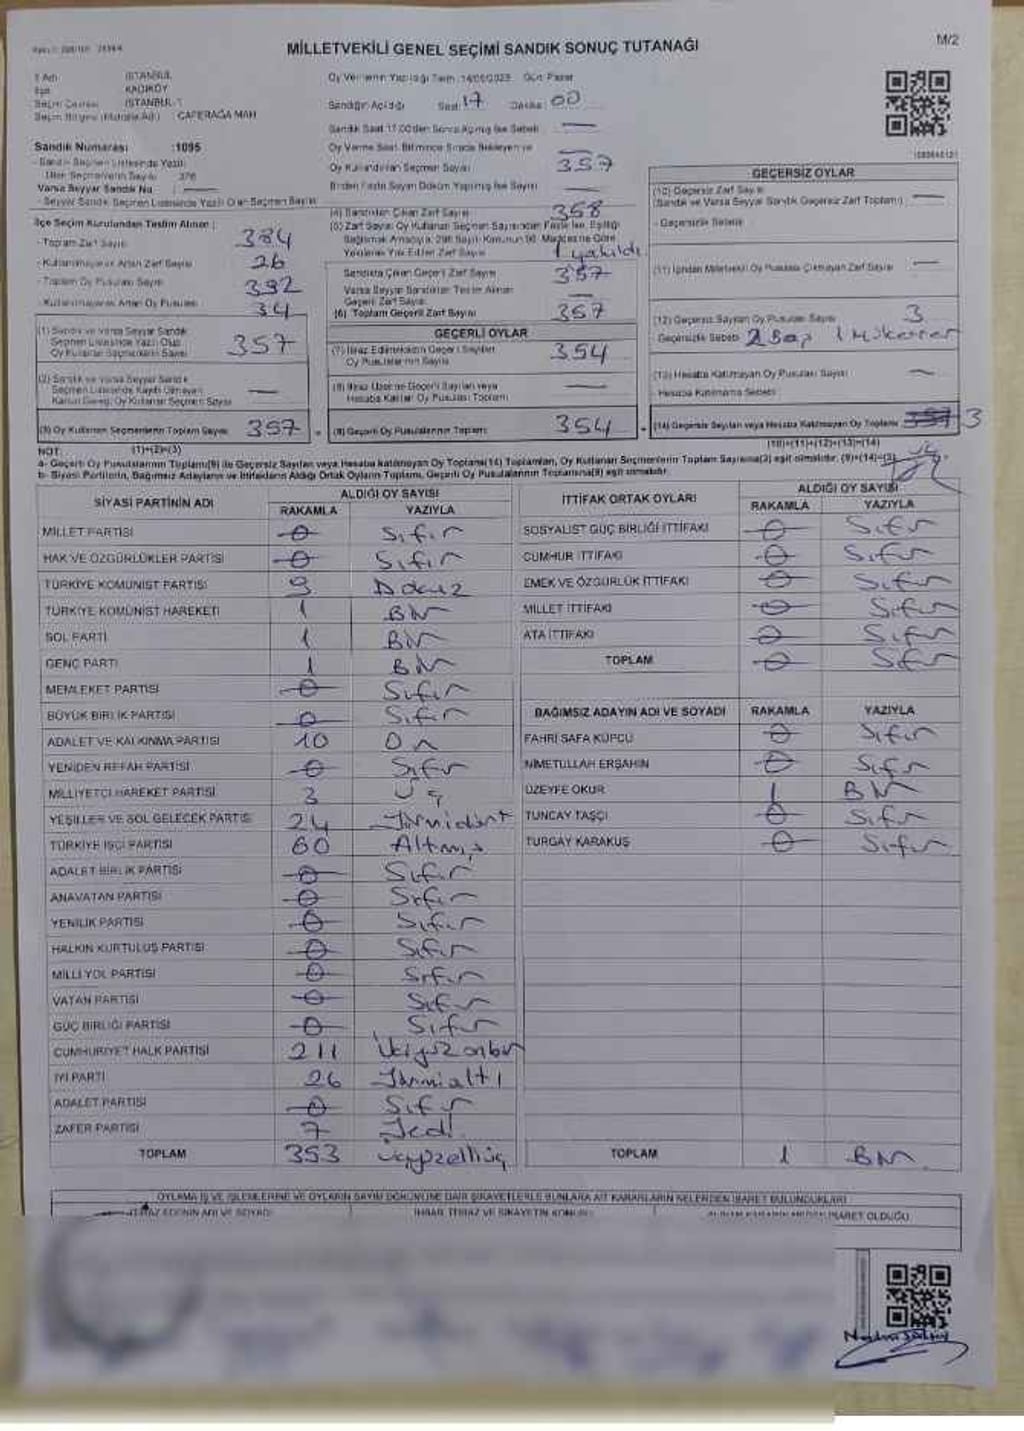 MİLLETVEKİLİ GENEL SEÇİMİ SANDIK SONUÇ TUTANAĞI
M/2
İl Adı İSTANBUL
İlçe KADIKÖY
Seçim Çevresi İSTANBUL-1
Seçim Bölgesi (Mahalle Adı) CAFERAĞA MAH
Sandık Numarası :1095
- Sandık Seçmen Listesinde Yazılı
Olan Seçmenlerin Sayısı 376
Varsa Seyyar Sandık No : —
- Seyyar Sandık Seçmen Listesinde Yazılı Olan Seçmen Sayısı
Oy Vermenin Yapıldığı Tarih :14/05/2023 Gün: Pazar
Sandığın Açıldığı Saat: 17 Dakika: 00
Sandık Saat 17.00'den Sonra Açılmış İse Sebebi —
Oy Verme Saati Bitiminde Sırada Bekleyen ve
Oy Kullandırılan Seçmen Sayısı 357
Birden Fazla Sayım Döküm Yapılmış İse Sayısı —
İlçe Seçim Kurulundan Teslim Alınan :
- Toplam Zarf Sayısı 384
- Kullanılmayarak Artan Zarf Sayısı 26
- Toplam Oy Pusulası Sayısı 392
- Kullanılmayarak Artan Oy Pusulası 34
(1) Sandık ve Varsa Seyyar Sandık
Seçmen Listesinde Yazılı Olup
Oy Kullanan Seçmenlerin Sayısı 357
(2) Sandık ve Varsa Seyyar Sandık
Seçmen Listesinde Kayıtlı Olmayan
Kanun Gereği Oy Kullanan Seçmen Sayısı —
(3) Oy Kullanan Seçmenlerin Toplam Sayısı 357
(4) Sandıktan Çıkan Zarf Sayısı 358
(5) Zarf Sayısı Oy Kullanan Seçmen Sayısından Fazla İse, Eşitliği
Sağlamak Amacıyla, 298 Sayılı Kanunun 98. Maddesine Göre
Yakılarak Yok Edilen Zarf Sayısı 1 yakıldı
Sandıkta Çıkan Geçerli Zarf Sayısı 357
Varsa Seyyar Sandıktan Teslim Alınan
Geçerli Zarf Sayısı —
(6) Toplam Geçerli Zarf Sayısı 357
GEÇERLİ OYLAR
(7) İtiraz Edilmeksizin Geçerli Sayılan
Oy Pusulalarının Sayısı 354
(8) İtiraz Üzerine Geçerli Sayılan veya
Hesaba Katılan Oy Pusulası Toplamı —
(9) Geçerli Oy Pusulalarının Toplamı 354
GEÇERSİZ OYLAR
(10) Geçersiz Zarf Sayısı
(Sandık ve Varsa Seyyar Sandık Geçersiz Zarf Toplamı) —
- Geçersizlik Sebebi
(11) İçinden Milletvekili Oy Pusulası Çıkmayan Zarf Sayısı —
(12) Geçersiz Sayılan Oy Pusulası Sayısı 3
Geçersizlik Sebebi 2 Boş 1 Mükerrer
(13) Hesaba Katılmayan Oy Pusulası Sayısı —
- Hesaba Katılmama Sebebi
(14) Geçersiz Sayılan veya Hesaba Katılmayan Oy Toplamı 357 3
NOT: (1)+(2)=(3)
(10)+(11)+(12)+(13)=(14)
a- Geçerli Oy Pusulalarının Toplamı(9) ile Geçersiz Sayılan veya Hesaba katılmayan Oy Toplamı(14) Toplamları, Oy Kullanan Seçmenlerin Toplam Sayısına(3) eşit olmalıdır. (9)+(14)=(3)
b- Siyasi Partilerin, Bağımsız Adayların ve İttifakların Aldığı Ortak Oyların Toplamı, Geçerli Oy Pusulalarının Toplamına(9) eşit olmalıdır.
SİYASİ PARTİNİN ADI ALDIĞI OY SAYISI
RAKAMLA YAZIYLA
MİLLET PARTİSİ 0 Sıfır
HAK VE ÖZGÜRLÜKLER PARTİSİ 0 Sıfır
TÜRKİYE KOMÜNİST PARTİSİ 9 Dokuz
TÜRKİYE KOMÜNİST HAREKETİ 1 Bir
SOL PARTİ 1 Bir
GENÇ PARTİ 1 Bir
MEMLEKET PARTİSİ 0 Sıfır
BÜYÜK BİRLİK PARTİSİ 0 Sıfır
ADALET VE KALKINMA PARTİSİ 10 On
YENİDEN REFAH PARTİSİ 0 Sıfır
MİLLİYETÇİ HAREKET PARTİSİ 3 Üç
YEŞİLLER VE SOL GELECEK PARTİSİ 24 Yirmidört
TÜRKİYE İŞÇİ PARTİSİ 60 Altmış
ADALET BİRLİK PARTİSİ 0 Sıfır
ANAVATAN PARTİSİ 0 Sıfır
YENİLİK PARTİSİ 0 Sıfır
HALKIN KURTULUŞ PARTİSİ 0 Sıfır
MİLLİ YOL PARTİSİ 0 Sıfır
VATAN PARTİSİ 0 Sıfır
GÜÇ BİRLİĞİ PARTİSİ 0 Sıfır
CUMHURİYET HALK PARTİSİ 211 İkiyüzonbir
İYİ PARTİ 26 Yirmialtı
ADALET PARTİSİ 0 Sıfır
ZAFER PARTİSİ 7 Yedi
TOPLAM 353 üçyüzelliüç
İTTİFAK ORTAK OYLARI ALDIĞI OY SAYISI
RAKAMLA YAZIYLA
SOSYALİST GÜÇ BİRLİĞİ İTTİFAKI 0 Sıfır
CUMHUR İTTİFAKI 0 Sıfır
EMEK VE ÖZGÜRLÜK İTTİFAKI 0 Sıfır
MİLLET İTTİFAKI 0 Sıfır
ATA İTTİFAKI 0 Sıfır
TOPLAM 0 Sıfır
BAĞIMSIZ ADAYIN ADI VE SOYADI RAKAMLA YAZIYLA
FAHRİ SAFA KÜPÇÜ 0 Sıfır
NİMETULLAH ERŞAHİN 0 Sıfır
ÜZEYFE OKUR 1 Bir
TUNCAY TAŞÇI 0 Sıfır
TURGAY KARAKUŞ 0 Sıfır
TOPLAM 1 Bir
OYLAMA İŞ VE İŞLEMLERİNE VE OYLARIN SAYIM DÖKÜMÜNE DAİR ŞİKAYETLERLE BUNLARA AİT KARARLARIN NELERDEN İBARET BULUNDUKLARI
İTİRAZ EDENİN ADI VE SOYADI İHBAR, İTİRAZ VE ŞİKAYETİN KONUSU ALINAN KARARIN NEDEN İBARET OLDUĞU